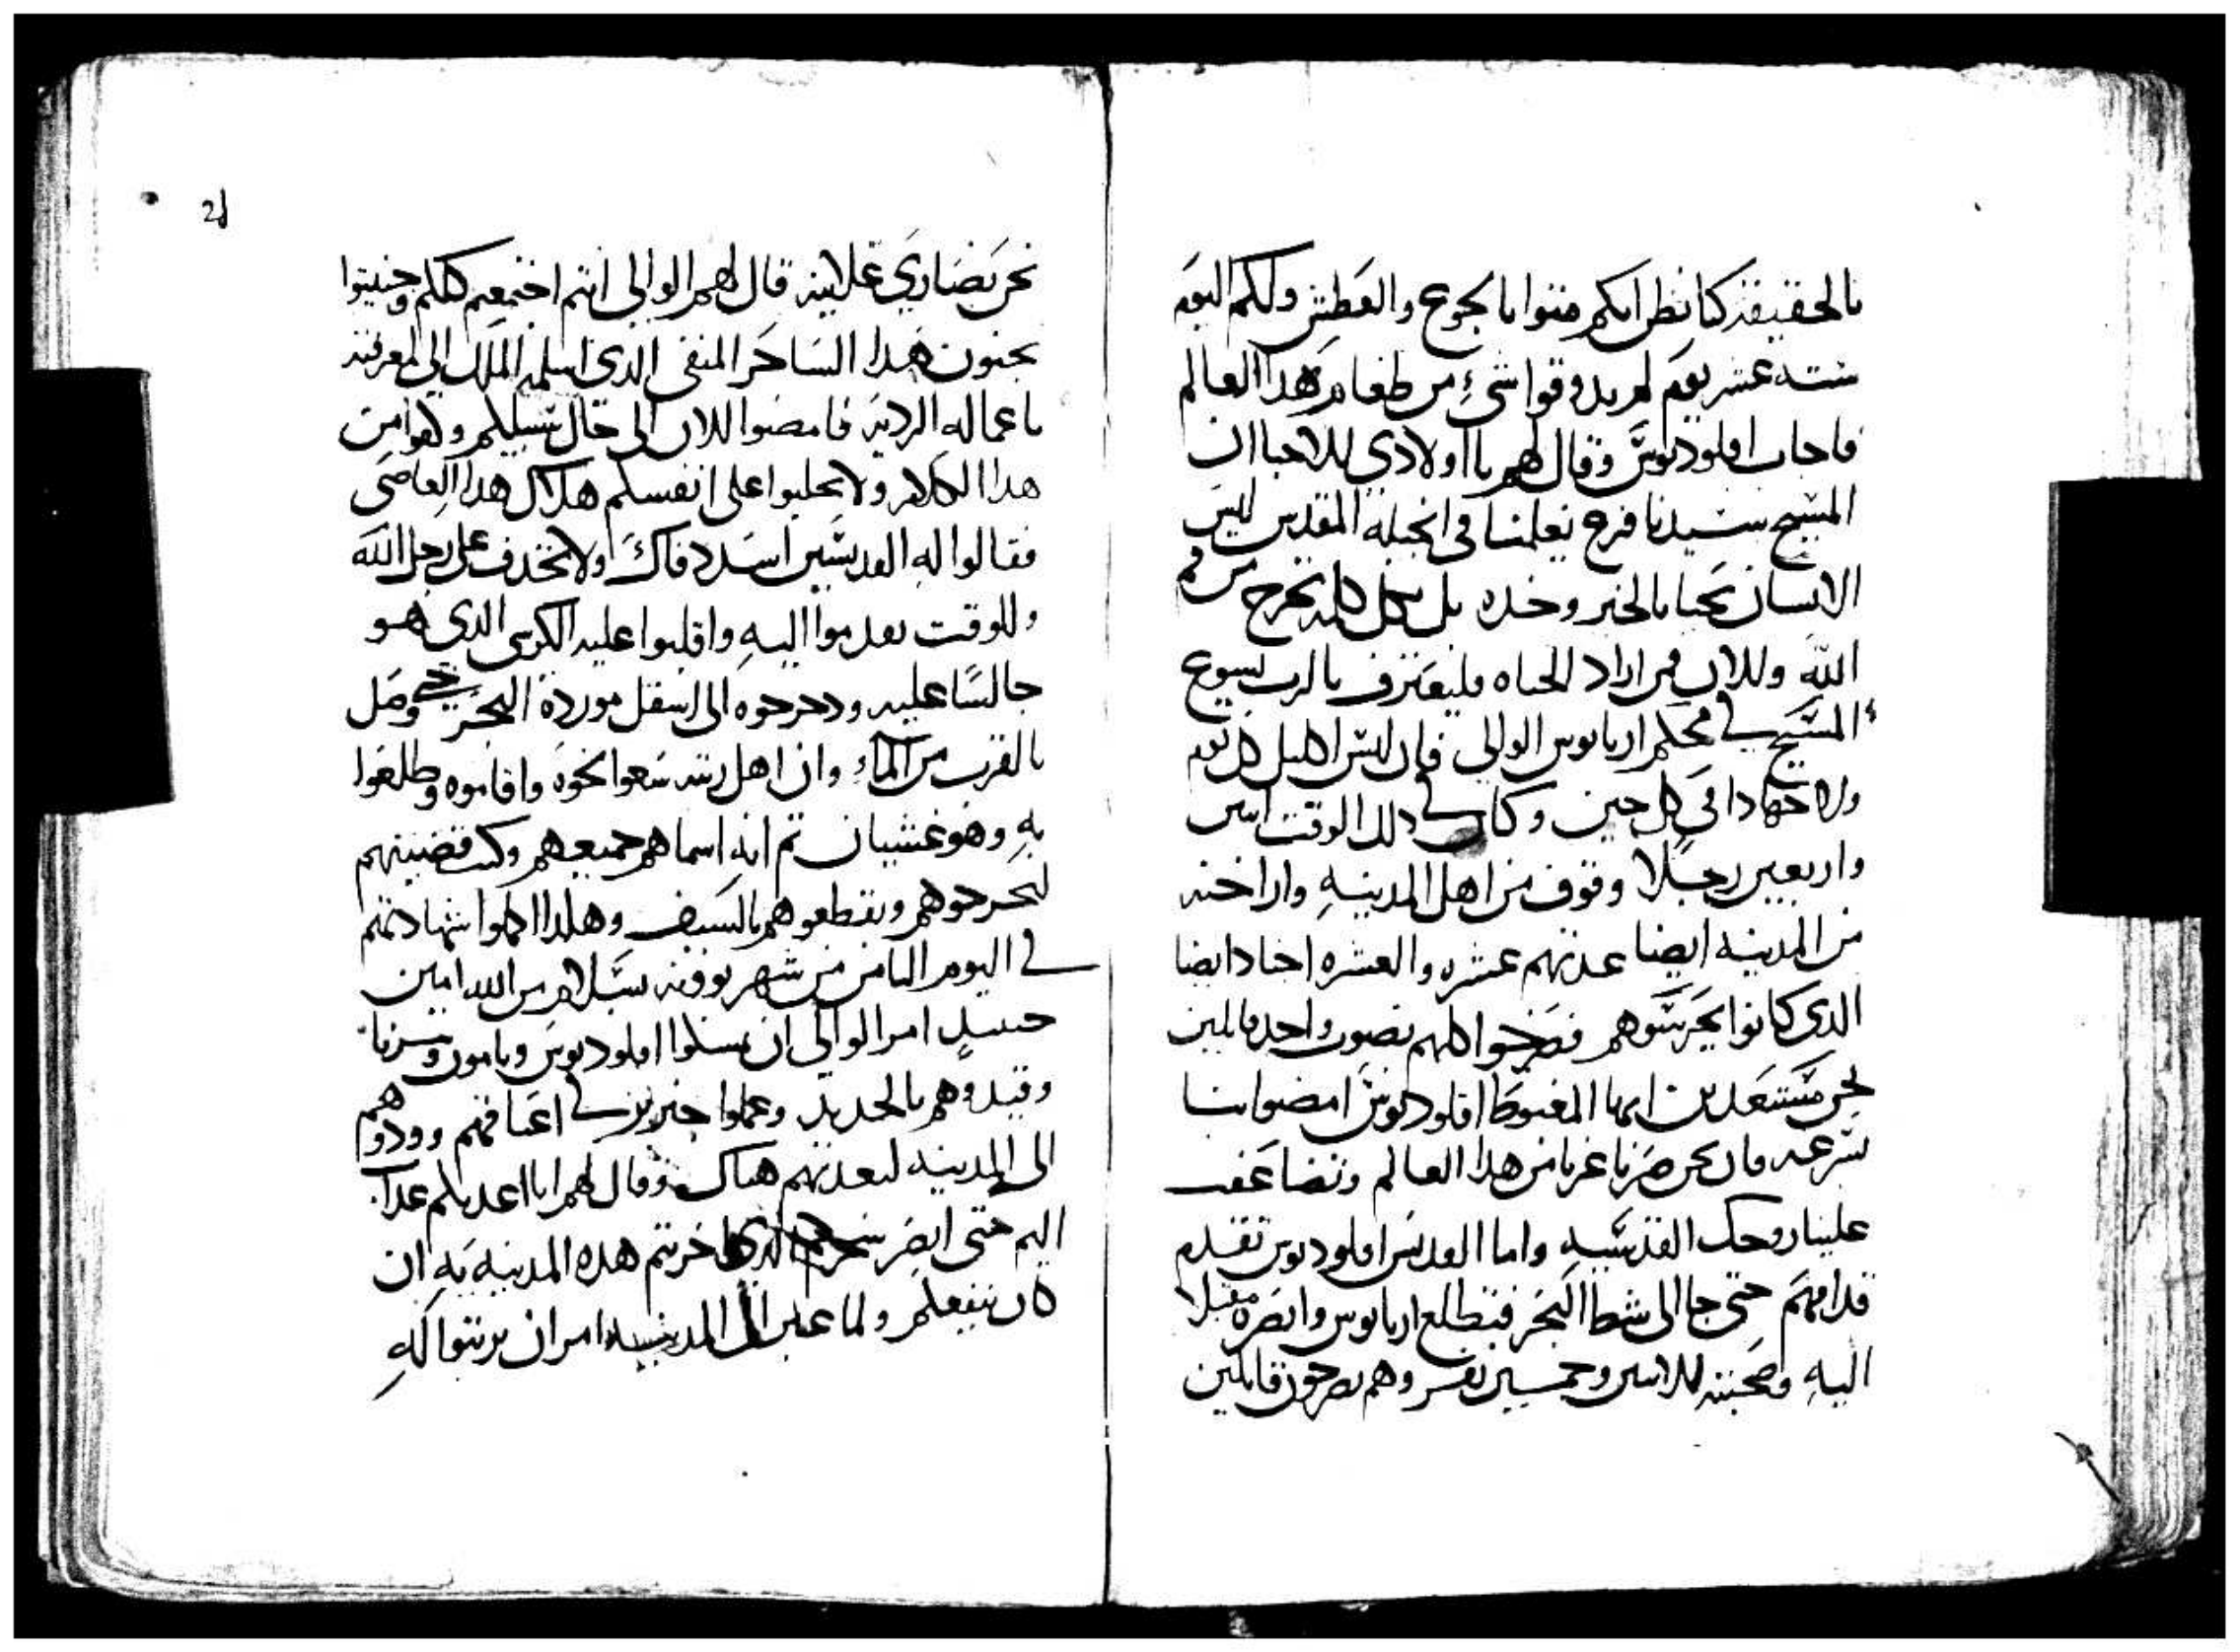 بالحقيقه كنا نظن انكم متوا بالجوع والعطش ولكم اليوم
سته عشر يوم لم يدوقوا شيء من طعام هدا العالم
فاجاب اقلوديوس وقال لهم يا اولادي الاحبا ان
المسيح سيدنا فرح تعلمنا في انجيله المقدس ليس
الانسان يحيا بالخبز وحده بل بكل كلمه تخرج من فم
الله والان من اراد الحياه فليعترف بالرب يسوع
المسيح في محكم اريانوس الوالي فان ليس اكليل كل يوم
ولا جهادا في كل حين وكان في دلك الوقت اتنين
واربعين رجلا وقوف من اهل المدينه واراخنه
من المدينه ايضا عدتهم عشره والعشره اجناد ايضا
الدي كانوا يحرسوهم فصرخوا كلهم بصوت واحد قايلين
نحن مستعدين ايها المغبوط اقلوديوس امضوا بنا
بسرعه فان نحن صرنا غربا من هدا العالم وتضاعفت
علينا روحك القديسيه واما القديس اقلوديوس تقدم
قدامهم حتى جا الى شط البحر فتطلع اريانوس وابصره مقبلا
اليه وصحبته الاتنين وخمسين نفس وهم يصرخون قايلين
21
نحن نصاري علانيه قال لهم الوالي انتم اجتمعتم كلكم وجنيتوا
بجنون هدا الساحر المنفى الدي اسلمه الملك الى لمعرفته
باعماله الرديه فامضوا الان الى حال سبيلكم وكفوا من
هدا الكلام ولا تجلبوا على انفسكم هلاك هدا العاصى
فقالوا له القديسين اسدد فاك ولا تجدف على رجل الله
وللوقت تقدموا اليه واقلبوا عليه الكرسى الدى هو
جالسا عليه ودحرجوه الى اسفل موردة البحر حتى وصل
بالقرب من الماء وان اهل رتبته سعوا نحوه واقاموه وطلعوا
به وهو غشيان تم انه اسماهم جميعهم وكتب قضيتهم
ليخرجوهم ويقطعوهم بالسيف وهكدا اكملوا شهادتهم
في اليوم التامن من شهر بوونه بسلام من الله امين
حينيد امر الوالي ان يمسكوا اقلوديوس وبامون وسرنا
وقيدوهم بالحديد وعملوا جنزير في اعناقهم وودوهم
الى المدينه ليعدبهم هناك وقال لهم انا اعدبكم عدآب
اليم حتى ابصر سحركم الدي اخربتم هده المدينه به ان
كان ينفعكم ولما عبر الى المدينه امر ان يرتبوا له